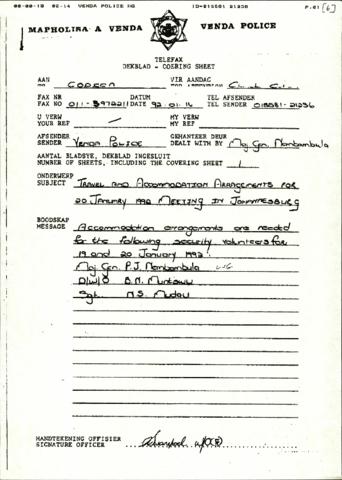 00-00-10 02-14 VENDA POLICE HQ
P.01 [6]
MAPHOLISA A VENDA VENDA POLICE
TELEFAX
DEKBLAD - COERING SHEET
AAN VIR AANDAG
CODESA
FAX NR DATUM TEL AFSENDER
FAX NO 011-3972211 DATE 92 01 14 TEL SENDER 015581-21236
U VERW MY VERW
YOUR REF MY REF
AFSENDER GEHANTEER DEUR
SENDER VENDA POLICE DEALT WITH BY Maj Gen. Nambambula
AANTAL BLADSYE, DEKBLAD INGESLUIT
NUMBER OF SHEETS, INCLUDING THE COVERING SHEET 1
ONDERWERP
SUBJECT TRAVEL AND ACCOMMODATION ARRANGEMENTS FOR
20 JANUARY 1992 MEETING IN JOHANNESBURG
BOODSKAP
MESSAGE Accommodation arrangements are needed
for the following security volunteers for
19 and 20 January 1992:
Maj Gen. P.J. Nambambula
D/W/O
Sgt. N.S. Mudau
HANDTEKENING OFFISIER
SIGNATURE OFFICER